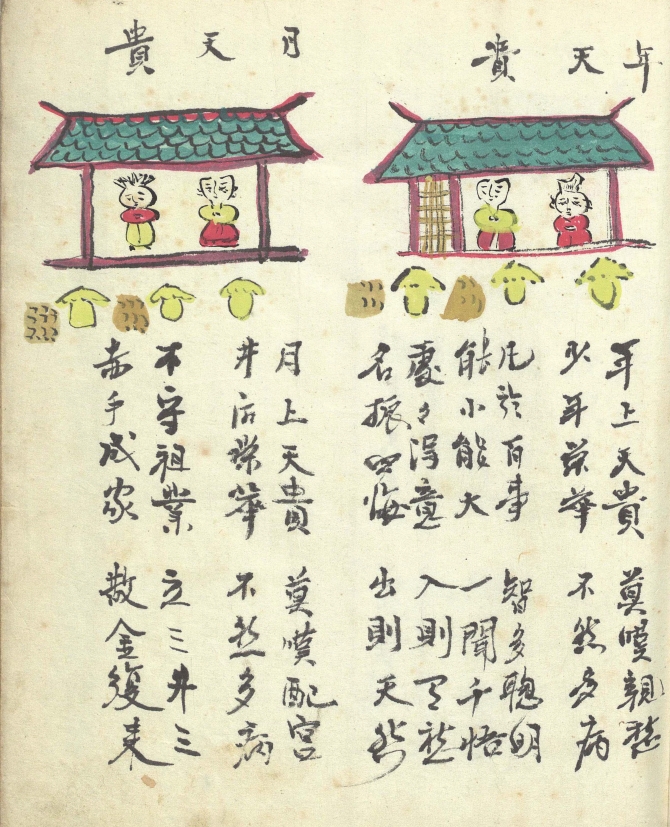 年天貴
年上天貴 莫嘆親
少年榮華 不然多病
凡於百事 智多聰明
能小能大 一聞千悟
處々得意 入則
名振四海 出則天然
月天貴
月上天貴 莫嘆配宮
井后榮華 不然多病
不守祖業 三井三
赤手成家 散金復来